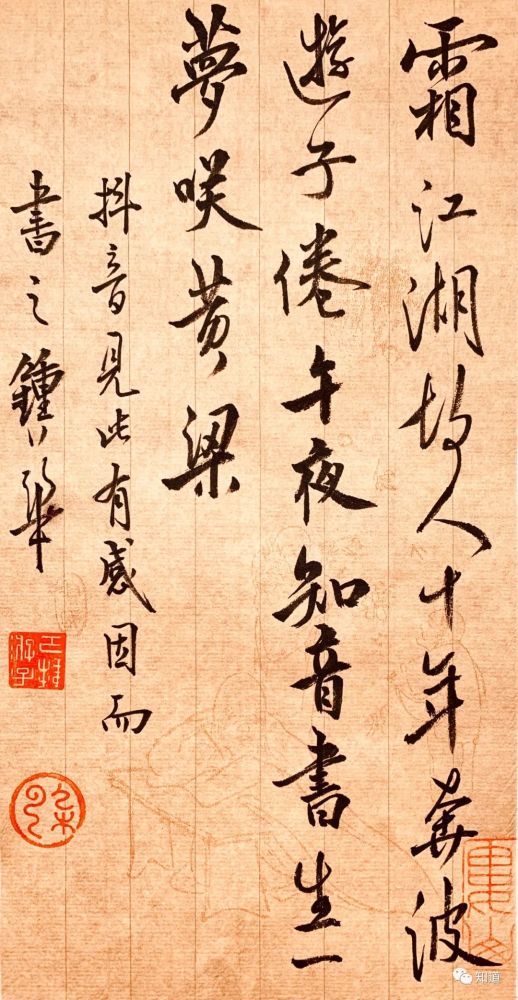 霜江湖故人十年奔波
遊子倦午夜知音書生一
夢咲黄粱
抖音見此有感因而
書之鍾華
知道